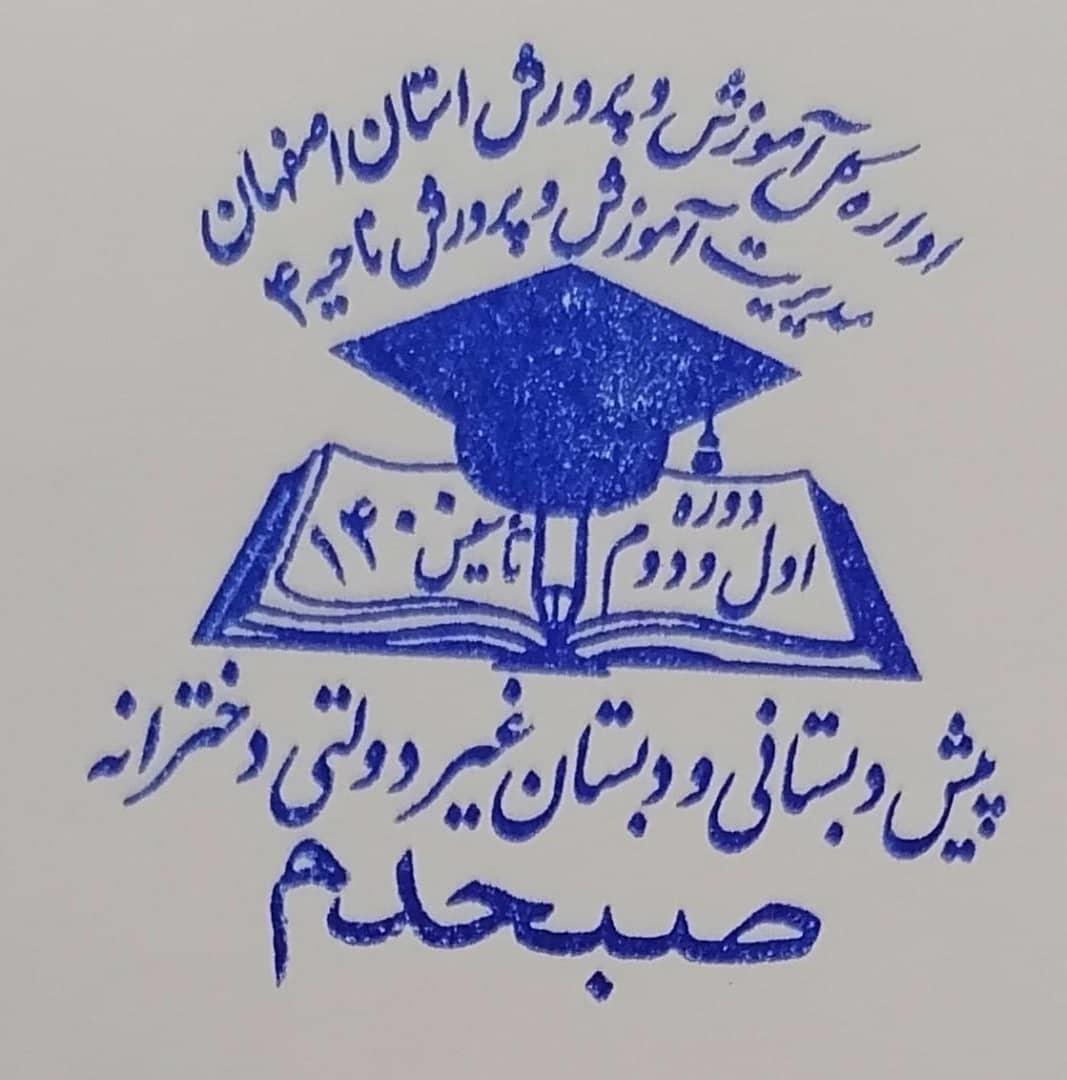 اداره کل آموزش و پرورش استان اصفهان
مدیریت آموزش و پرورش ناحیه ۴
دوره
اول و دوم
تأسیس ۱۴۰۰
پیش دبستانی و دبستان غیر دولتی دخترانه
صبحدم